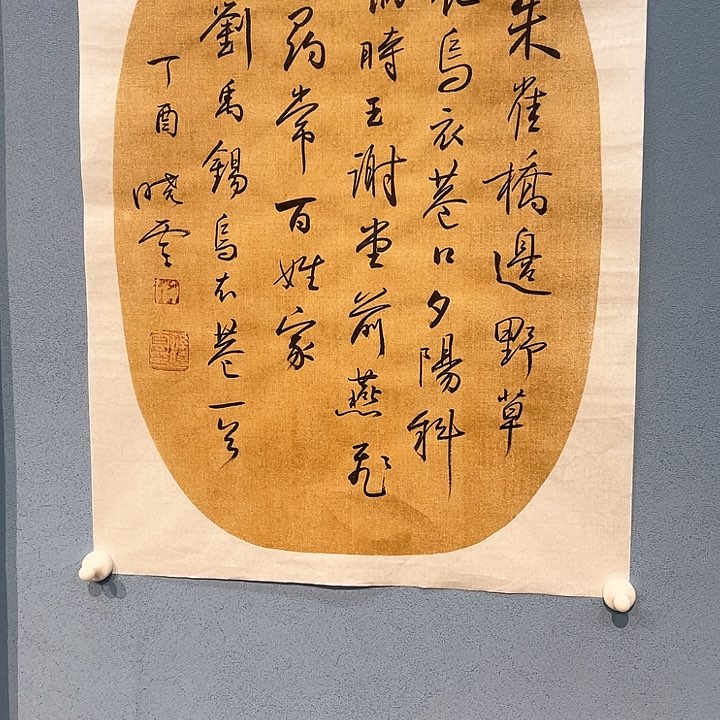 朱雀橋邊野草
烏衣巷口夕陽斜
時王謝堂前燕飛
尋常百姓家
劉禹錫烏衣巷一首
丁酉
曉雲